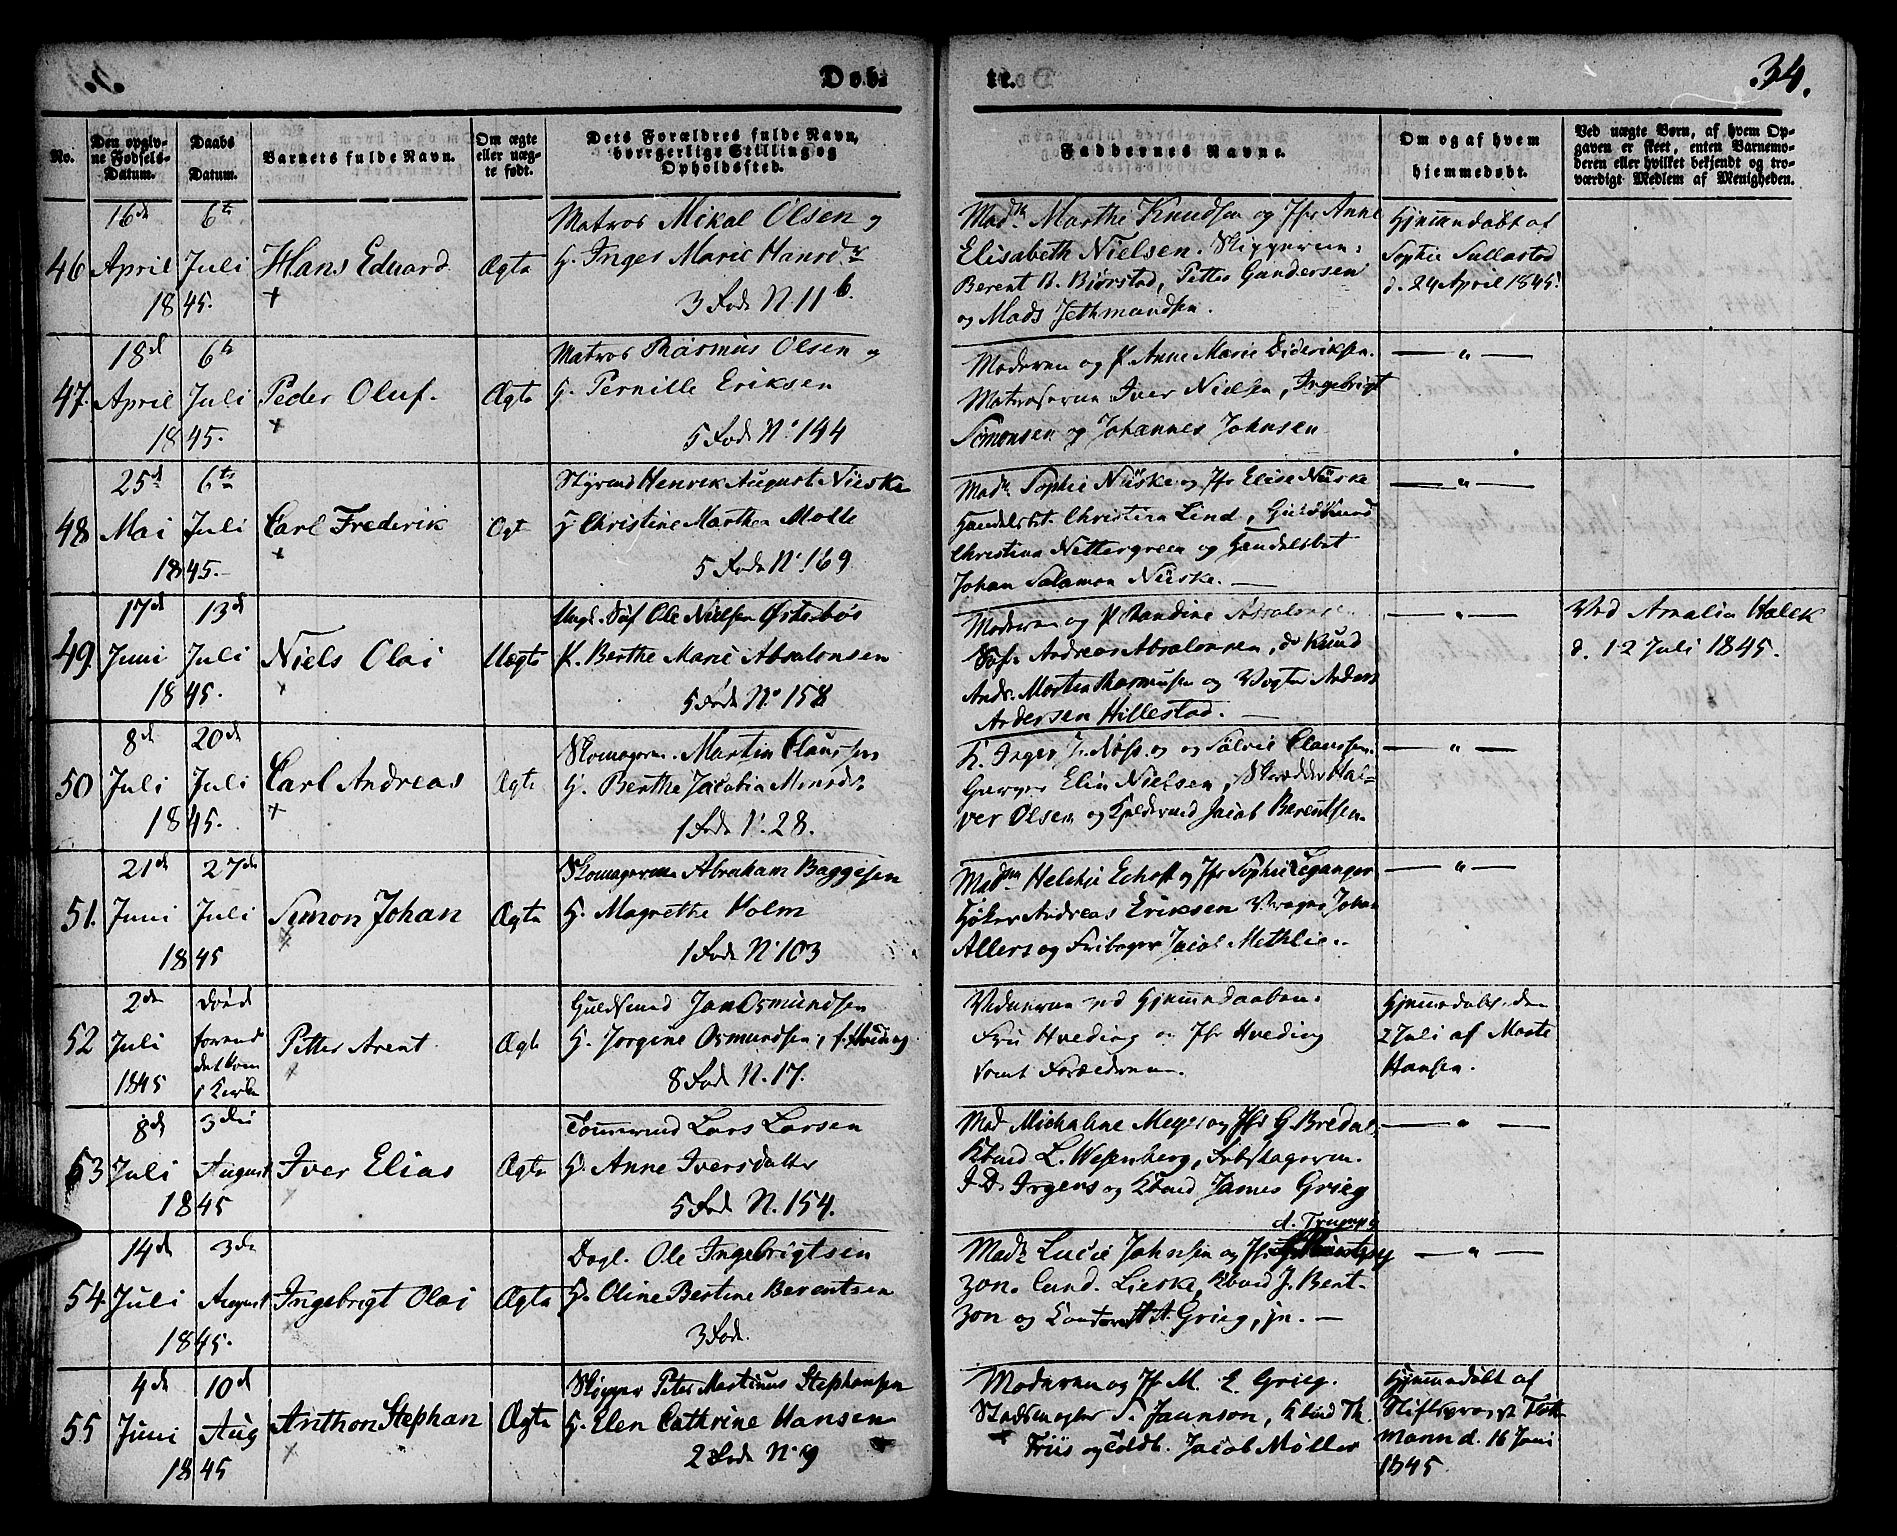 Døb-
te.
34.
No.
Den opgiv-
ne Fødsels-
Datum.
Daabs
Datum.
Barnets fulde Navn.
Om ægte
eller uæg-
te født.
Dets Forældres fulde Navn,
borgerlige Stilling og
Opholdssted.
Faddernes Navne.
Om og af hvem
hjemmedøbt.
Ved uægte Børn, af hvem Op-
gaven er skeet, enten Barnemo-
deren eller hvilket bekjendt og tro-
værdigt Medlem af Menigheden.
46
16de April 1845.
6te Juli
Hans Eduard
+
Ægte
Matros Mikal Olsen og
H. Inger Marie Hansdr
3 Fode N. 11 b.
Mad. Marthe Knudsen og Jfr Anne
Elisabeth Nielsen. Skipperne
Berent B. Bjørstad, Petter Gundersen
og Mads Jethmundsen.
Hjemmedøbt af
Sophie
d. 24 April 1845.
47.
18d April 1845.
6te Juli
Peder Oluf.
+
Ægte
Matros Rasmus Olsen og
H. Pernille Eriksen
5 Fode N. 144
Moderen og P. Anne Marie Dideriksen.
Matroserne Iver Nielsen, Ingebrigt
Simonsen og Johannes Johnsen
— " —
48
25d Mai 1845.
6te Juli
Carl Frederik
+
Ægt
Styrmd Henrik August Niiske
H Christine Marthea Molle
5 Fode N. 169
Mad. Sophie Niiske og Jfr Elise Niiske
Handelsbt. Christian Lind, Guldsmed
Christian Nettergreen og Handelsbt
Johan Salamon Niiske. —
— " —
49.
17de Juni 1845.
13de Juli
Niels Olai
+
Uægte
Ungk. Søf Ole Nielsen Østerbøs
P. Berthe Marie Absalonsen
5 Fode N. 158
Moderen og P. Absalonsen
Søfr Andreas Absalonsen, do Knud
Andr. Morten Rasmusen og Vogter Anders
Andersen Hillestad. —
— " —
Ved Amalia Holck
d. 12 Juli 1845.
50
8de Juli 1845.
20de Juli
Carl Andreas
+
Ægte
Skomagerm. Martin Claussen
H. Berthe Jacobia Monsdr
1 Fode N. 28.
K. Inger og Sølvie Claussen.
Elin Nielsen, Skrædder Hal-
ver Olsen og Jacob Berentsen.
— " —
51.
21de Juni 1845
27de Juli
Simon Johan
Ægte
Skomagerm Abraham Baggesen
H. Magrethe Holm
1 Fode N. 103
Madm Helchie Echoff og Jfr Sophie Leganger
Høker Andreas Eriksen Johan
Allers og Jacob Methlie.
— " —
52
2de Juli 1845
Død
forend
det kom
i Kirke
Petter Arent
Ægte
Guldsmed Jan Osmundsen
H. Jorgine Osmundsen, f. Hveding
8 Fode N. 17.
Vidnerne ved Hjemmedaaben.
Fru Hveding og Jfr Hveding
samt Forældrene.
Hjemmedøbt den
2 Juli af Marte
Hansen.
53
8de Juli 1845
3die August
Iver Elias
Ægte
Tømmermd Lars Larsen
H. Anne Iversdatter
5 Fode N. 154.
Mad Michaline Meyer og Jfr G. Bredal,
Kbmd L. Wesenberg,
J. D. Irgens og Kbmd James Grieg
— " —
54
14de Juli 1845.
3die August
Ingebrigt Olai
Ægte
Dagl. Ole Ingebrigtsen
H. Oline Bertine Berentsen
3 Fode.
Madm Lucie Johnsen og Jfr
zon. Cand. Lieske, Kbmd J. Bent-
zon og A. Grieg, jn. —
— " —
55
4de Juni 1845
10de Aug
Anthon Stephan
Ægte
Skipper Peter Martinus Stephansen
H. Elen Cathrine Hansen
2 Fode N. 9
Moderen og Jfr M. E. Grieg.
Stadsmægler S. Jannson, Kbmd Th.
Friis og Toldb. Jacob Møller
Hjemmedøbt af
Stiftsprovst
d. 16 Juni
1845